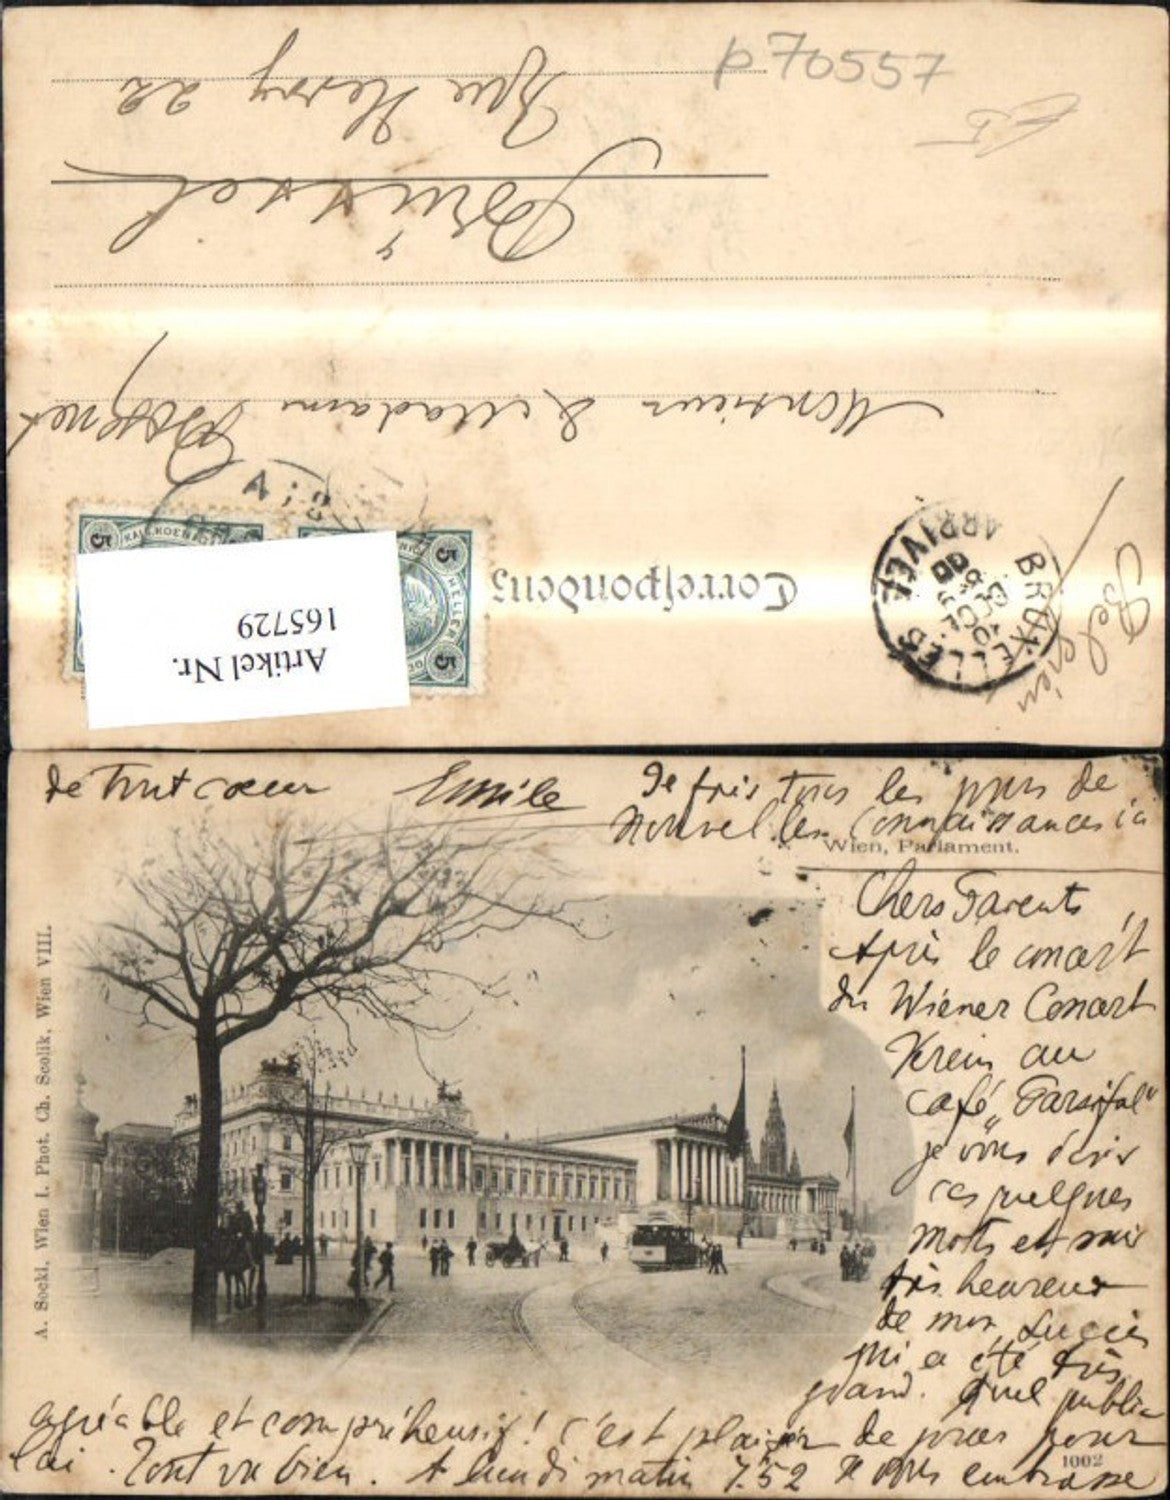 p 70557
Rue Henry 22
Brüssel
Monsieur & Madam
Correspondenz
BRUXELLES
ARRIVEE
10 OCT.
00
Belgien
5
5
5
Artikel Nr.
165729
de tout cœur Emile
Je fais tous les jours de
nouvelles connaissances ici
Wien, Parlament.
Chers Parents,
Après le concert
du Wiener Concert
Verein au
café „Parsifal"
je vous écris
ces quelques
mots et suis
très heureux
de mon succès
qui a été très
grand. Quel public
agréable et compréhensif! C'est plaisir de jouer pour
lui. Tout va bien. A lundi matin 7.52 Je vous embrasse
1002
A. Sockl, Wien I. Phot. Ch. Scolik, Wien VIII.